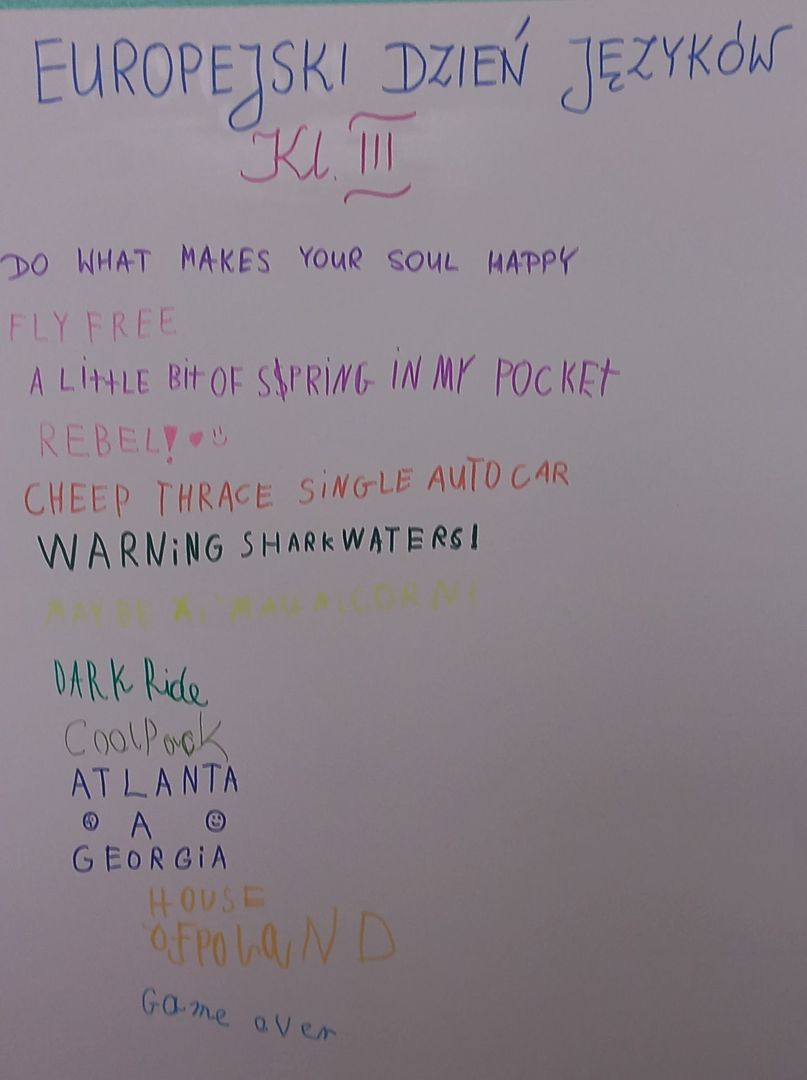 EUROPEJSKI DZIEŃ JĘZYKÓW
Kl. III
DO WHAT MAKES YOUR SOUL HAPPY
FLY FREE
A LittLE Bit OF S$PRiNG iN MY POCKEt
REBEL!
CHEEP THRACE SiNGLE AUTO CAR
WARNiNG SHARKWATERS!
MAYBE
DARK Ride
CoolPack
ATLANTA
A
GEORGiA
HOUSE
OFPOLaND
Game over